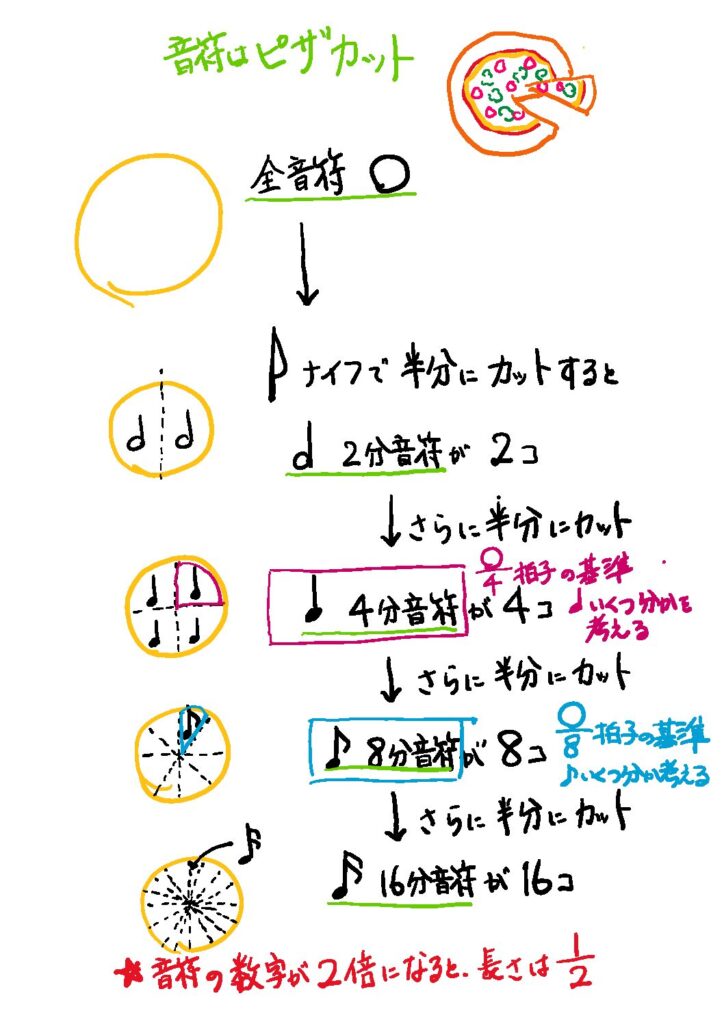 音符はピザカット
全音符
ナイフで半分にカットすると
2分音符が 2コ
さらに半分にカット
4分音符が 4コ
○/4 拍子の基準
♩いくつ分かを
考える
さらに半分にカット
8分音符が 8コ
○/8 拍子の基準
♪いくつ分か考える
さらに半分にカット
16分音符が 16コ
★音符の数字が2倍になると、長さは 1/2